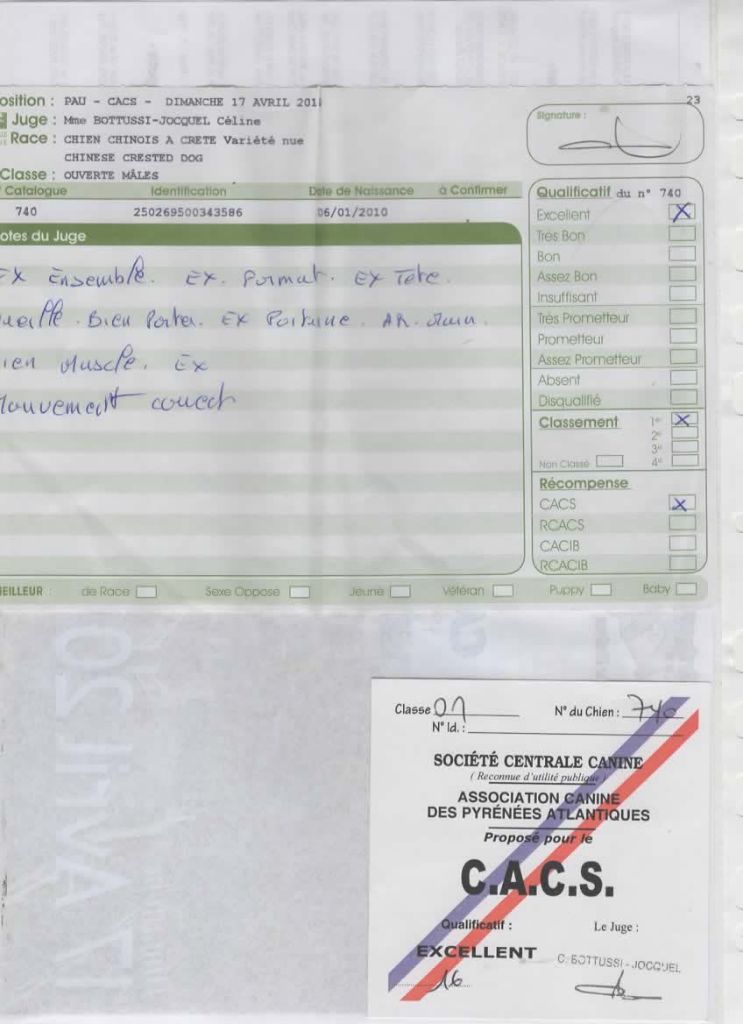 osition : PAU - CACS - DIMANCHE 17 AVRIL 201
23
Juge : Mme BOTTUSSI-JOCQUEL Céline
Signature :
Race : CHIEN CHINOIS A CRETE Variété nue
CHINESE CRESTED DOG
Classe : OUVERTE MÂLES
Catalogue Identification Date de Naissance à Confirmer
740 250269500343586 06/01/2010
otes du Juge
EX Ensemble. EX. Format. EX Tete.
Bien Porter. EX Poitrine. AR.
ien Muscle. EX
Mouvement correct
Qualificatif du n° 740
Excellent X
Très Bon
Bon
Assez Bon
Insuffisant
Très Prometteur
Prometteur
Assez Prometteur
Absent
Disqualifié
Classement 1er X
2e
3e
Non Classé 4e
Récompense
CACS X
RCACS
CACIB
RCACIB
EILLEUR : de Race Sexe Opposé Jeune Vétéran Puppy Baby
Classe N° du Chien : 740
N° Id. :
SOCIÉTÉ CENTRALE CANINE
( Reconnue d'utilité publique )
ASSOCIATION CANINE
DES PYRÉNÉES ATLANTIQUES
Proposé pour le
C.A.C.S.
Qualificatif : Le Juge :
EXCELLENT C. BOTTUSSI - JOCQUEL
16